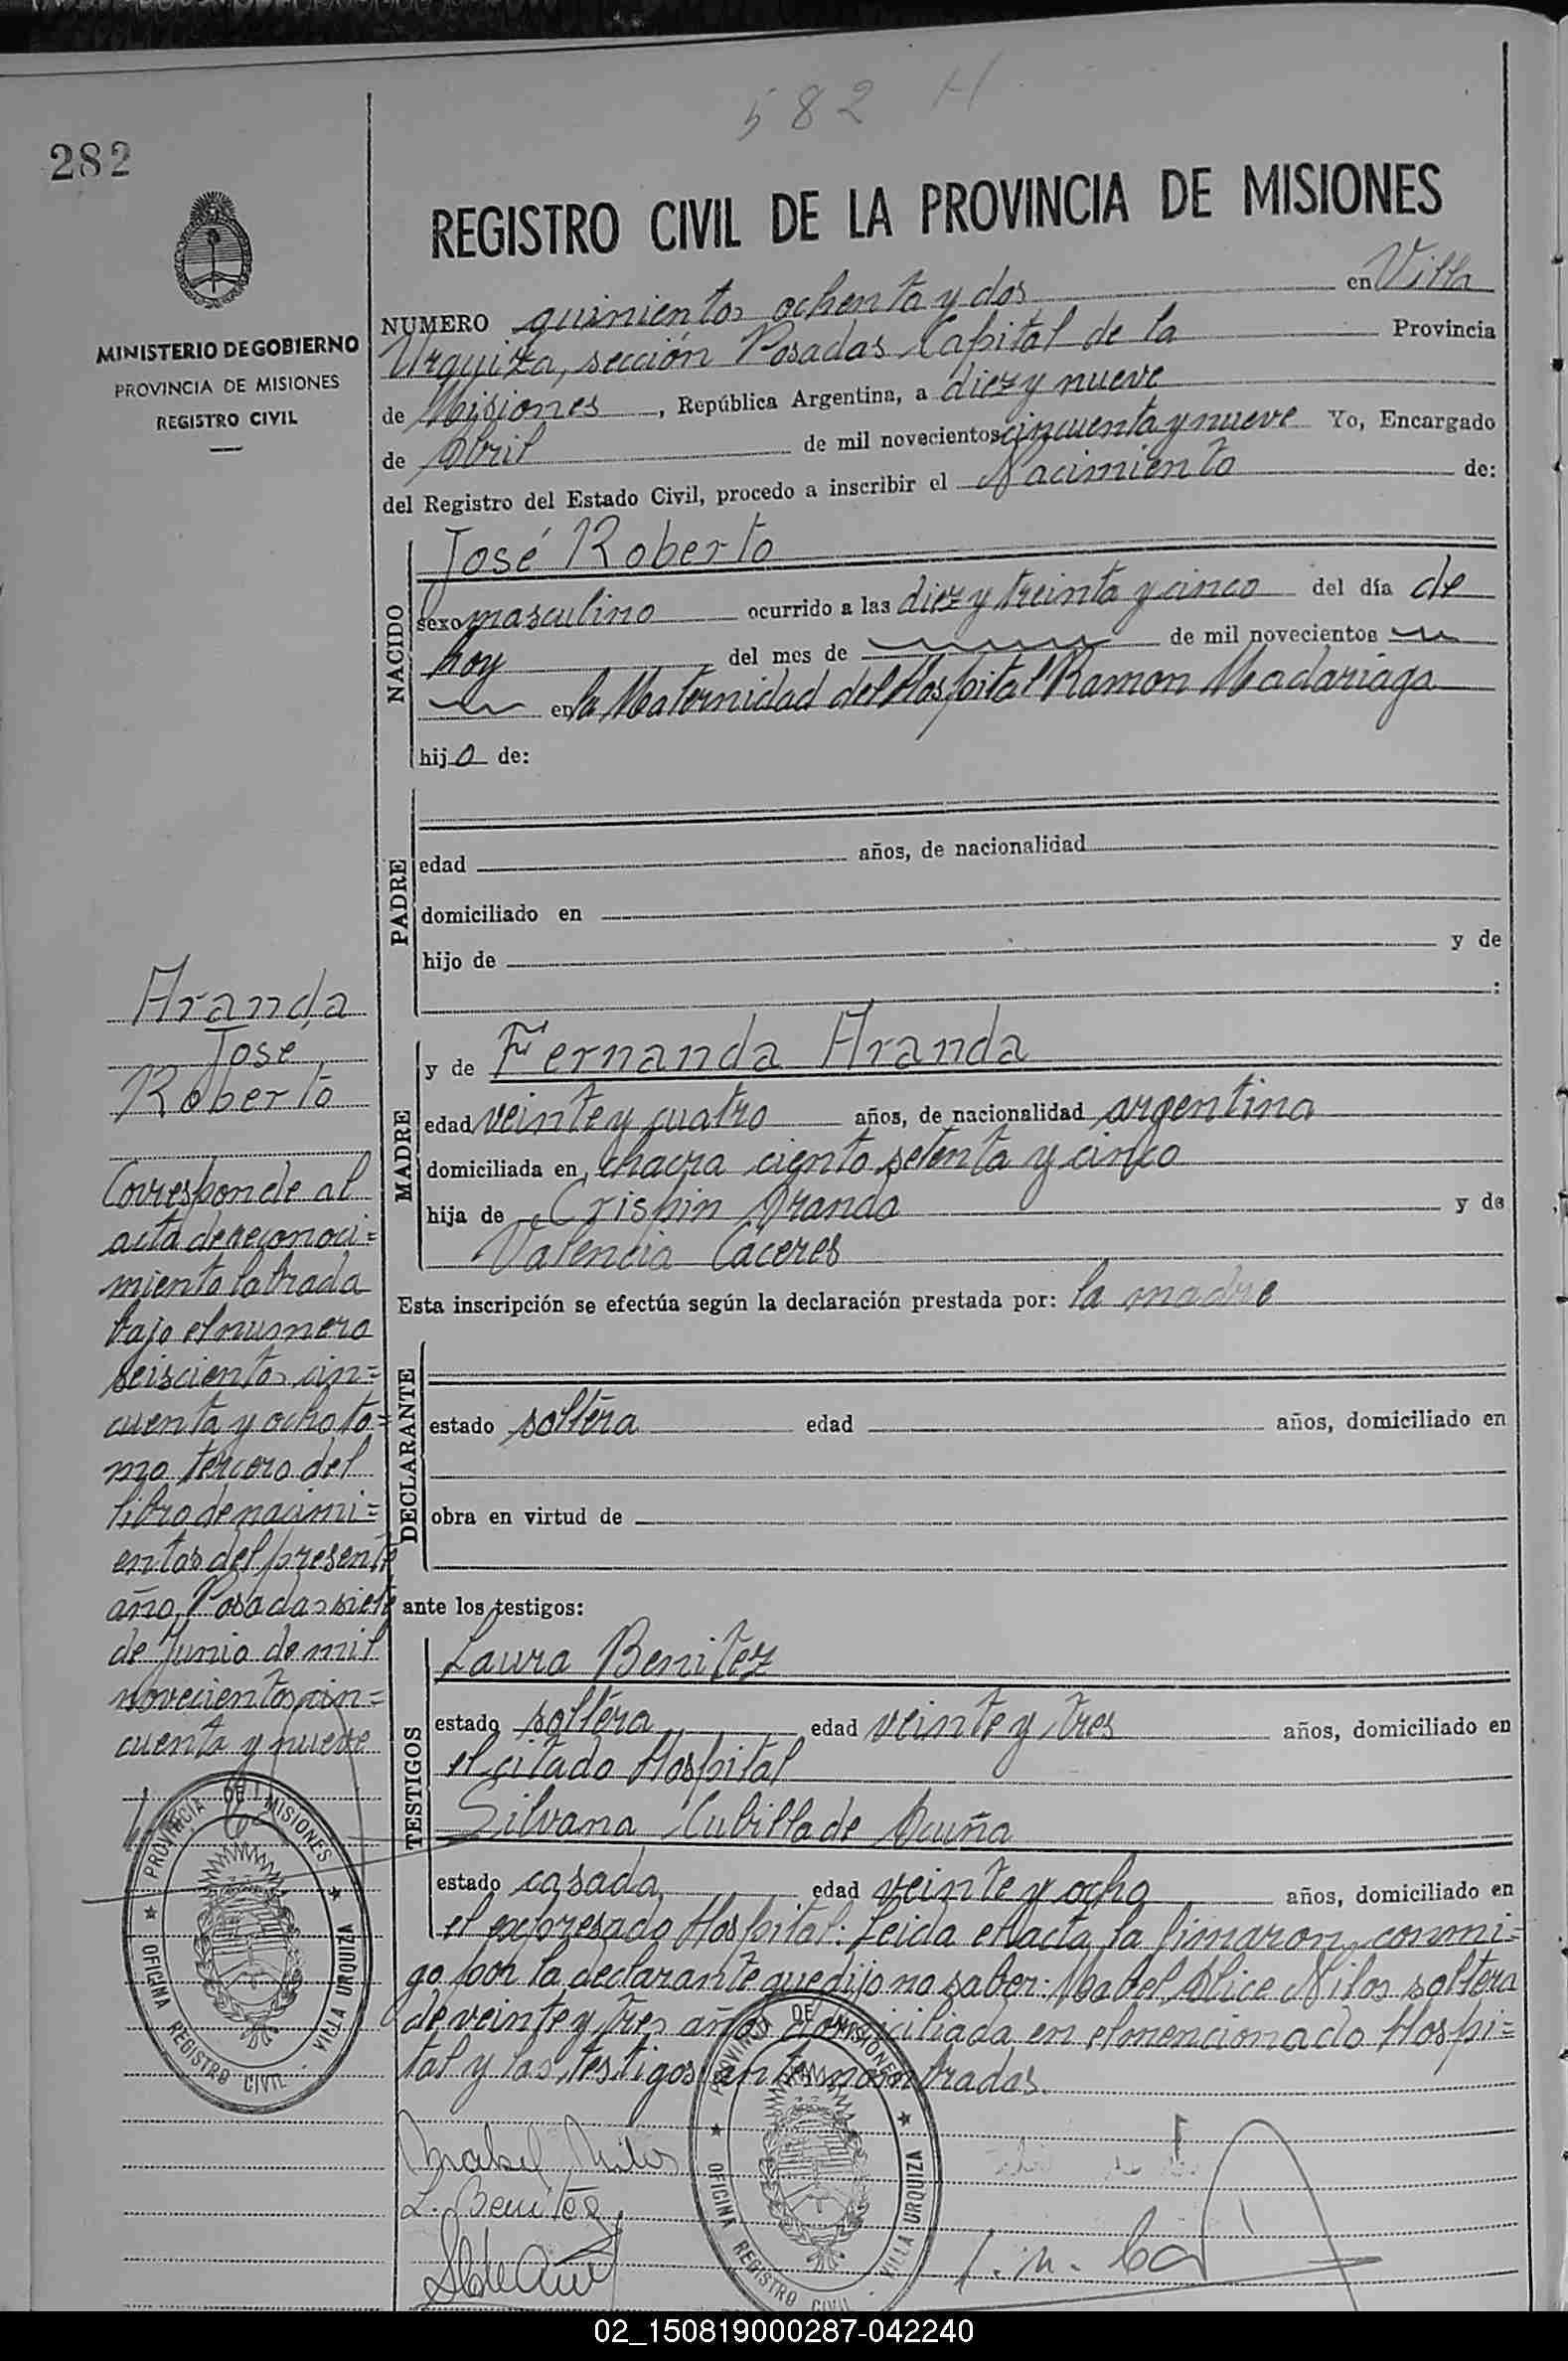 582 H
282
REGISTRO CIVIL DE LA PROVINCIA DE MISIONES
MINISTERIO DE GOBIERNO
PROVINCIA DE MISIONES
REGISTRO CIVIL
NUMERO quinientos ochenta y dos en Villa
Urquiza, sección Posadas Capital de la Provincia
de Misiones, República Argentina, a diez y nueve
de Abril de mil novecientos cincuenta y nueve Yo, Encargado
del Registro del Estado Civil, procedo a inscribir el Nacimiento de:
NACIDO
José Roberto
sexo masculino ocurrido a las diez y treinta y cinco del día de
hoy del mes de de mil novecientos
en la Maternidad del Hospital Ramon Madariaga
hijo de:
PADRE
edad años, de nacionalidad
domiciliado en
hijo de y de
:
MADRE
y de Fernanda Aranda
edad veinte y cuatro años, de nacionalidad argentina
domiciliada en chacra ciento setenta y cinco
hija de Crispin Aranda y de
Valencia Cáceres
Esta inscripción se efectúa según la declaración prestada por: la madre
DECLARANTE
estado soltera edad años, domiciliado en
obra en virtud de
ante los testigos:
TESTIGOS
Laura Benitez
estado soltera edad veinte y tres años, domiciliado en
el citado Hospital
Silvana Cubilla de Acuña
estado casada edad veinte y ocho años, domiciliado en
el expresado Hospital: Leida el acta la firmaron conmi=
go por la declarante que dijo no saber: Mabel Alice Milos soltera
de veinte y tres años domiciliada en el mencionado Hospi=
tal y los testigos antenombradas.
Mabel Milos
L. Benítez
Aranda
José
Roberto
Corresponde al
acta de reconoci=
miento labrada
bajo el numero
seiscientos cin=
cuenta y ocho to=
mo tercero del
libro de nacimi=
entos del presente
año, Posadas siete
de Junio de mil
novecientos cin=
cuenta y nueve
PROVINCIA DE MISIONES
OFICINA REGISTRO CIVIL · VILLA URQUIZA
PROVINCIA DE MISIONES
OFICINA REGISTRO CIVIL · VILLA URQUIZA
02_150819000287-042240